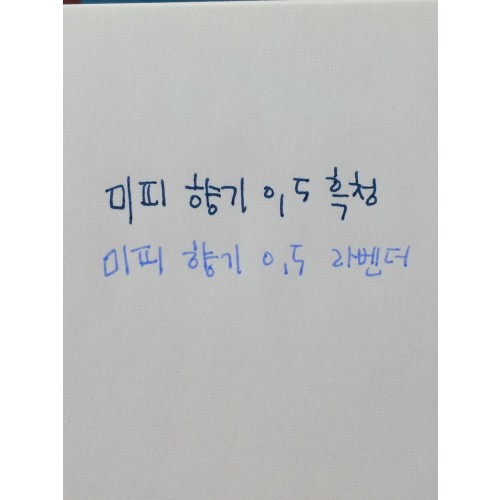 미피 향기 0,5 흑청
미피 향기 0,5 라벤더